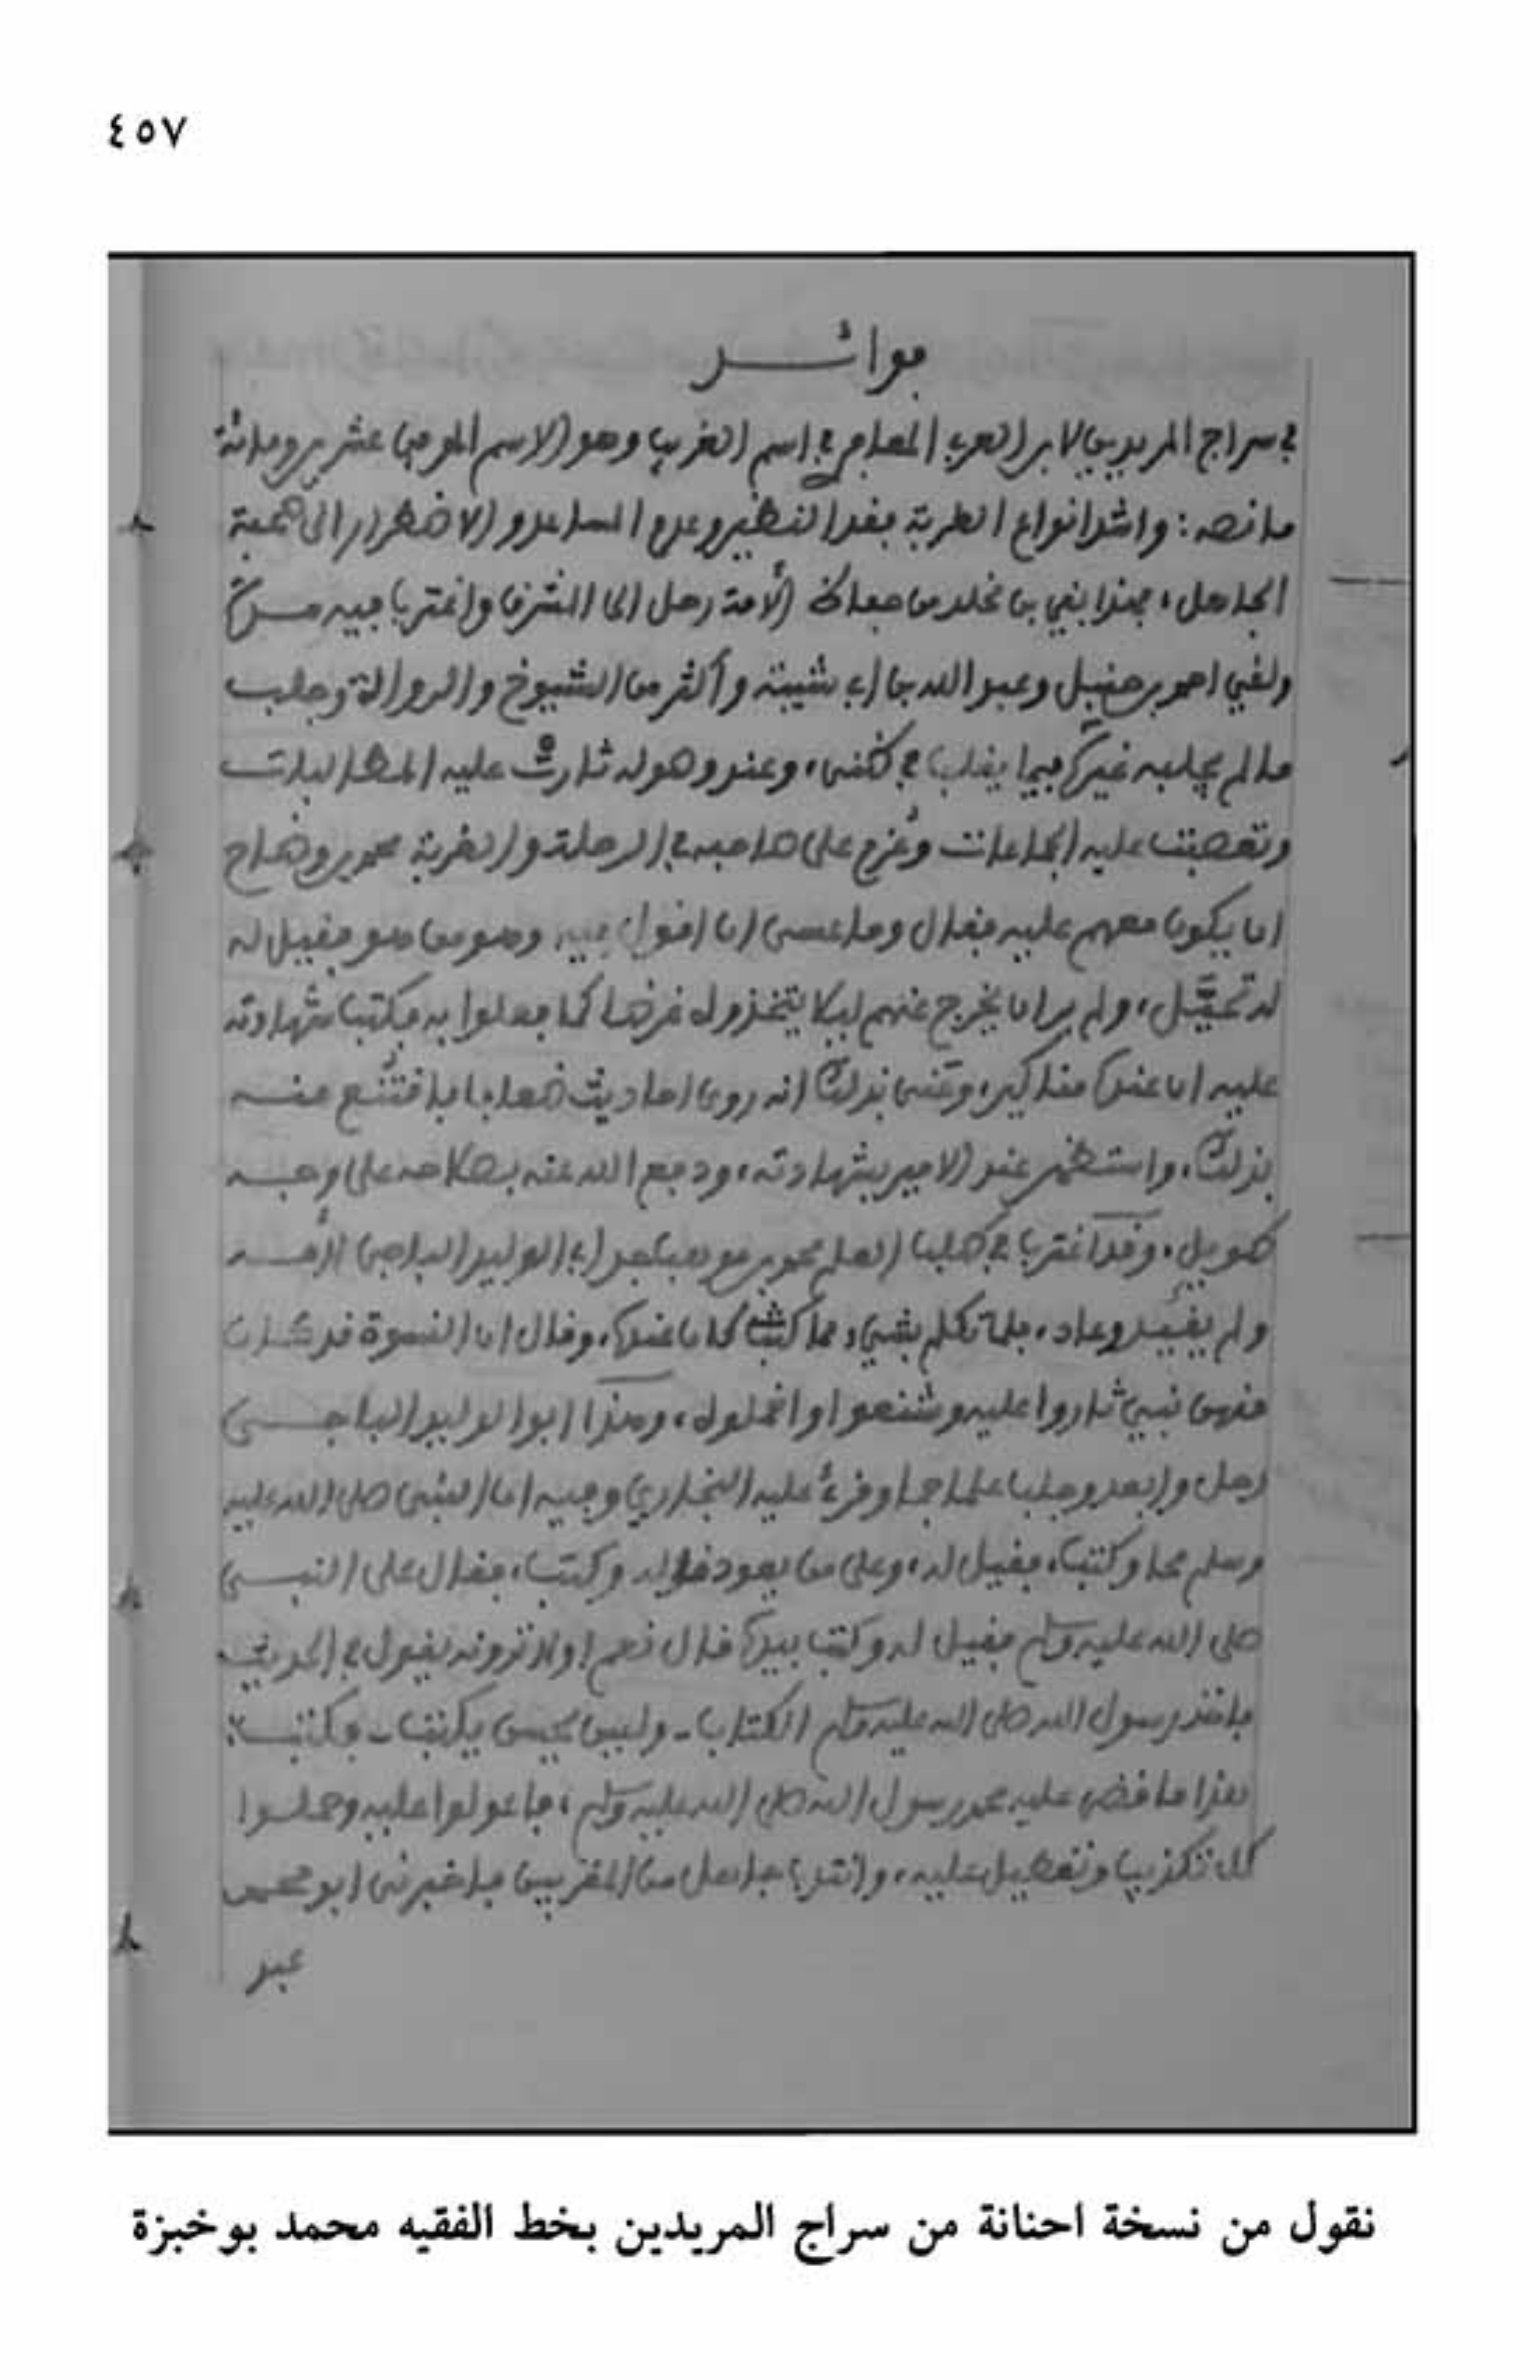 ٤٥٧
فوائد
في سراج المريدين لابن العربي المعافري في اسم الغريب وهو الاسم الموفي عشرين ومائة
ما نصه: واشد انواع الغربة فقد النظير وعدم المساعد والاضطرار الى صحبة
الجاهل، فهذا بقي بن مخلد من جملة الأمة رحل الى الشرق واغترب فيه مرتين
ولقي احمد بن حنبل وعبد الله بن ابي شيبة وأكثر من الشيوخ والرواية وجلب
ما لم يجلبه غيره فيما يغلب في ظني، وعند وصوله ثارت عليه المطالبات
وتعصبت عليه الجماعات وعُزم على صاحبه في الرحلة والغربة محمد بن وضاح
ان يكون معهم عليه فقال وما عسى ان اقول فيه وهو من هو فقيل له
لِه تحيَّل، ولم ير ان يخرج عنهم ليلا يتخذوه غرضا كما فعلوا به فكتب شهادته
عليه ان عنده مناكير، وعنى بذلك انه روى احاديث ضعافا فاقتنع منه
بذلك، واستظهر عند الامير بشهادته، ودفع الله عنه بصلاحه على وجه
طويل، وقد اغترب في طلب العلم محمد بن موهب جد ابي الوليد الباجي لأمه
ولم يفيد وعاد، فلما تكلم بشيء مما كان عنده، وقال ان النسوة قد كان
منهن نبي ثاروا عليه وشنعوا واخملوه، وهذا ابو الوليد الباجي
رحل وابعد وجلب علما جما وقرئ عليه البخاري وفيه ان النبي صلى الله عليه
وسلم محا وكتب، فقيل له، وعلى من يعود قوله وكتب، فقال على النبي
صلى الله عليه وسلم فقيل له وكتب بيده قال نعم اولا ترونه يقول في الحديث
فاخذ رسول الله صلى الله عليه وسلم الكتاب - وليس يحسن يكتب - فكتب:
هذا ما قاضى عليه محمد رسول الله صلى الله عليه وسلم، فاعولوا عليه وحملوا
كل تكذيب وتعطيل عليه، وانتدب جاهل من المقربين فاخبرني ابو محمد
عبد
نقول من نسخة احنانة من سراج المريدين بخط الفقيه محمد بوخبزة